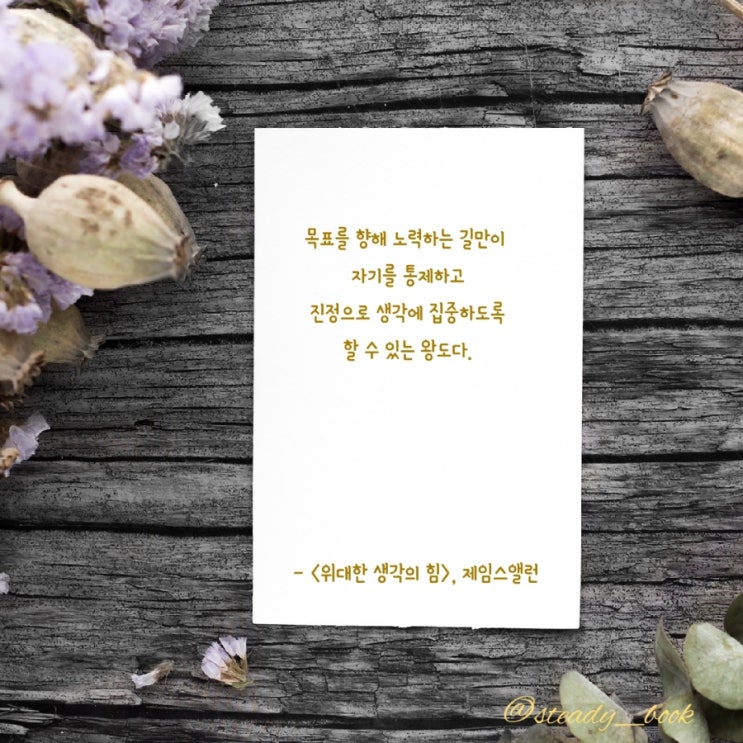 목표를 향해 노력하는 길만이
자기를 통제하고
진정으로 생각에 집중하도록
할 수 있는 왕도다.
- <위대한 생각의 힘>, 제임스앨런
@steady__book